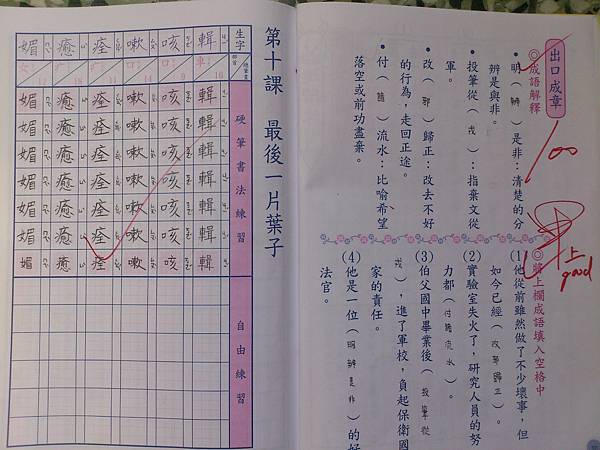 出口成章
◎成語解釋
•明（辨）是非：清楚的分
辨是與非。
•投筆從（戎）：指棄文從
軍。
•改（邪）歸正：改去不好
的行為，走回正途。
•付（諸）流水：比喻希望
落空或前功盡棄。
100
◎將上欄成語填入空格中
(1)他從前雖然做了不少壞事，但
如今已經（改邪歸正）。
(2)實驗室失火了，研究人員的努
力都（付諸流水）。
(3)伯父國中畢業後（投筆從
戎），進了軍校，負起保衛國
家的責任。
(4)他是一位（明辨是非）的好
法官。
上
good
第十課 最後一片葉子
生字
硬筆書法練習
自由練習
輯 輯 輯 輯 輯 輯 輯 輯
咳 咳 咳 咳 咳 咳 咳 咳
嗽 嗽 嗽 嗽 嗽 嗽 嗽 嗽
痊 痊 痊 痊 痊 痊 痊 痊
癒 癒 癒 癒 癒 癒 癒 癒
媚 媚 媚 媚 媚 媚 媚 媚